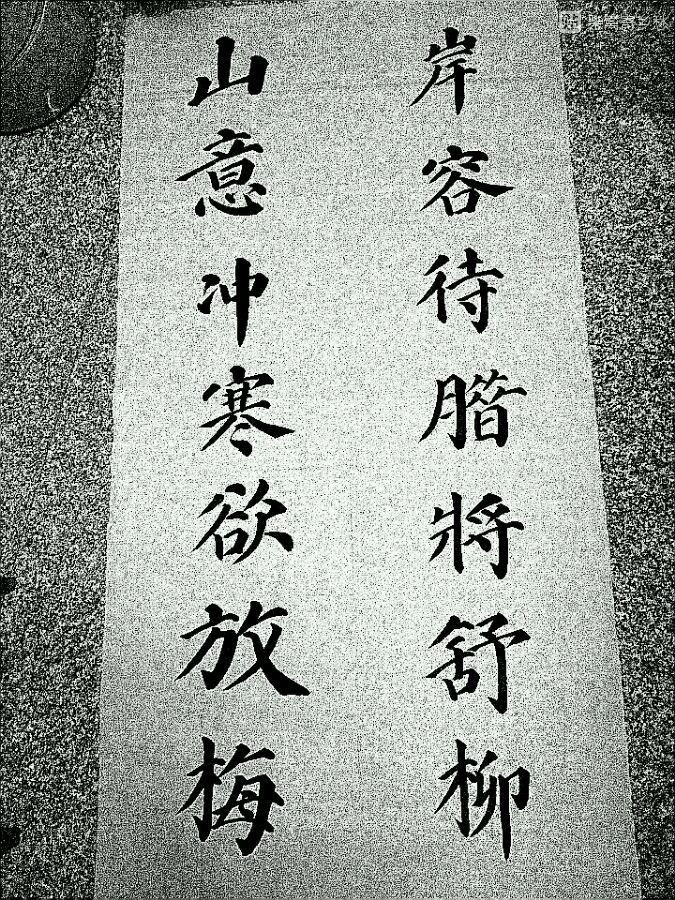 岸容待腊將舒柳
山意冲寒欲放梅